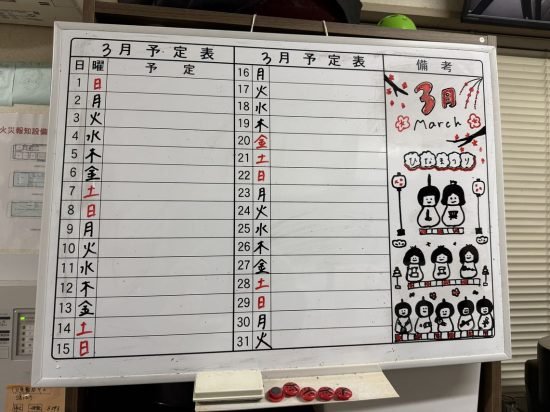 3月予定表
日 曜 予定
1 日
2 月
3 火
4 水
5 木
6 金
7 土
8 日
9 月
10 火
11 水
12 木
13 金
14 土
15 日
3月予定表
16 月
17 火
18 水
19 木
20 金
21 土
22 日
23 月
24 火
25 水
26 木
27 金
28 土
29 日
30 月
31 火
備考
3月
March
ひなまつり
火災報知設備